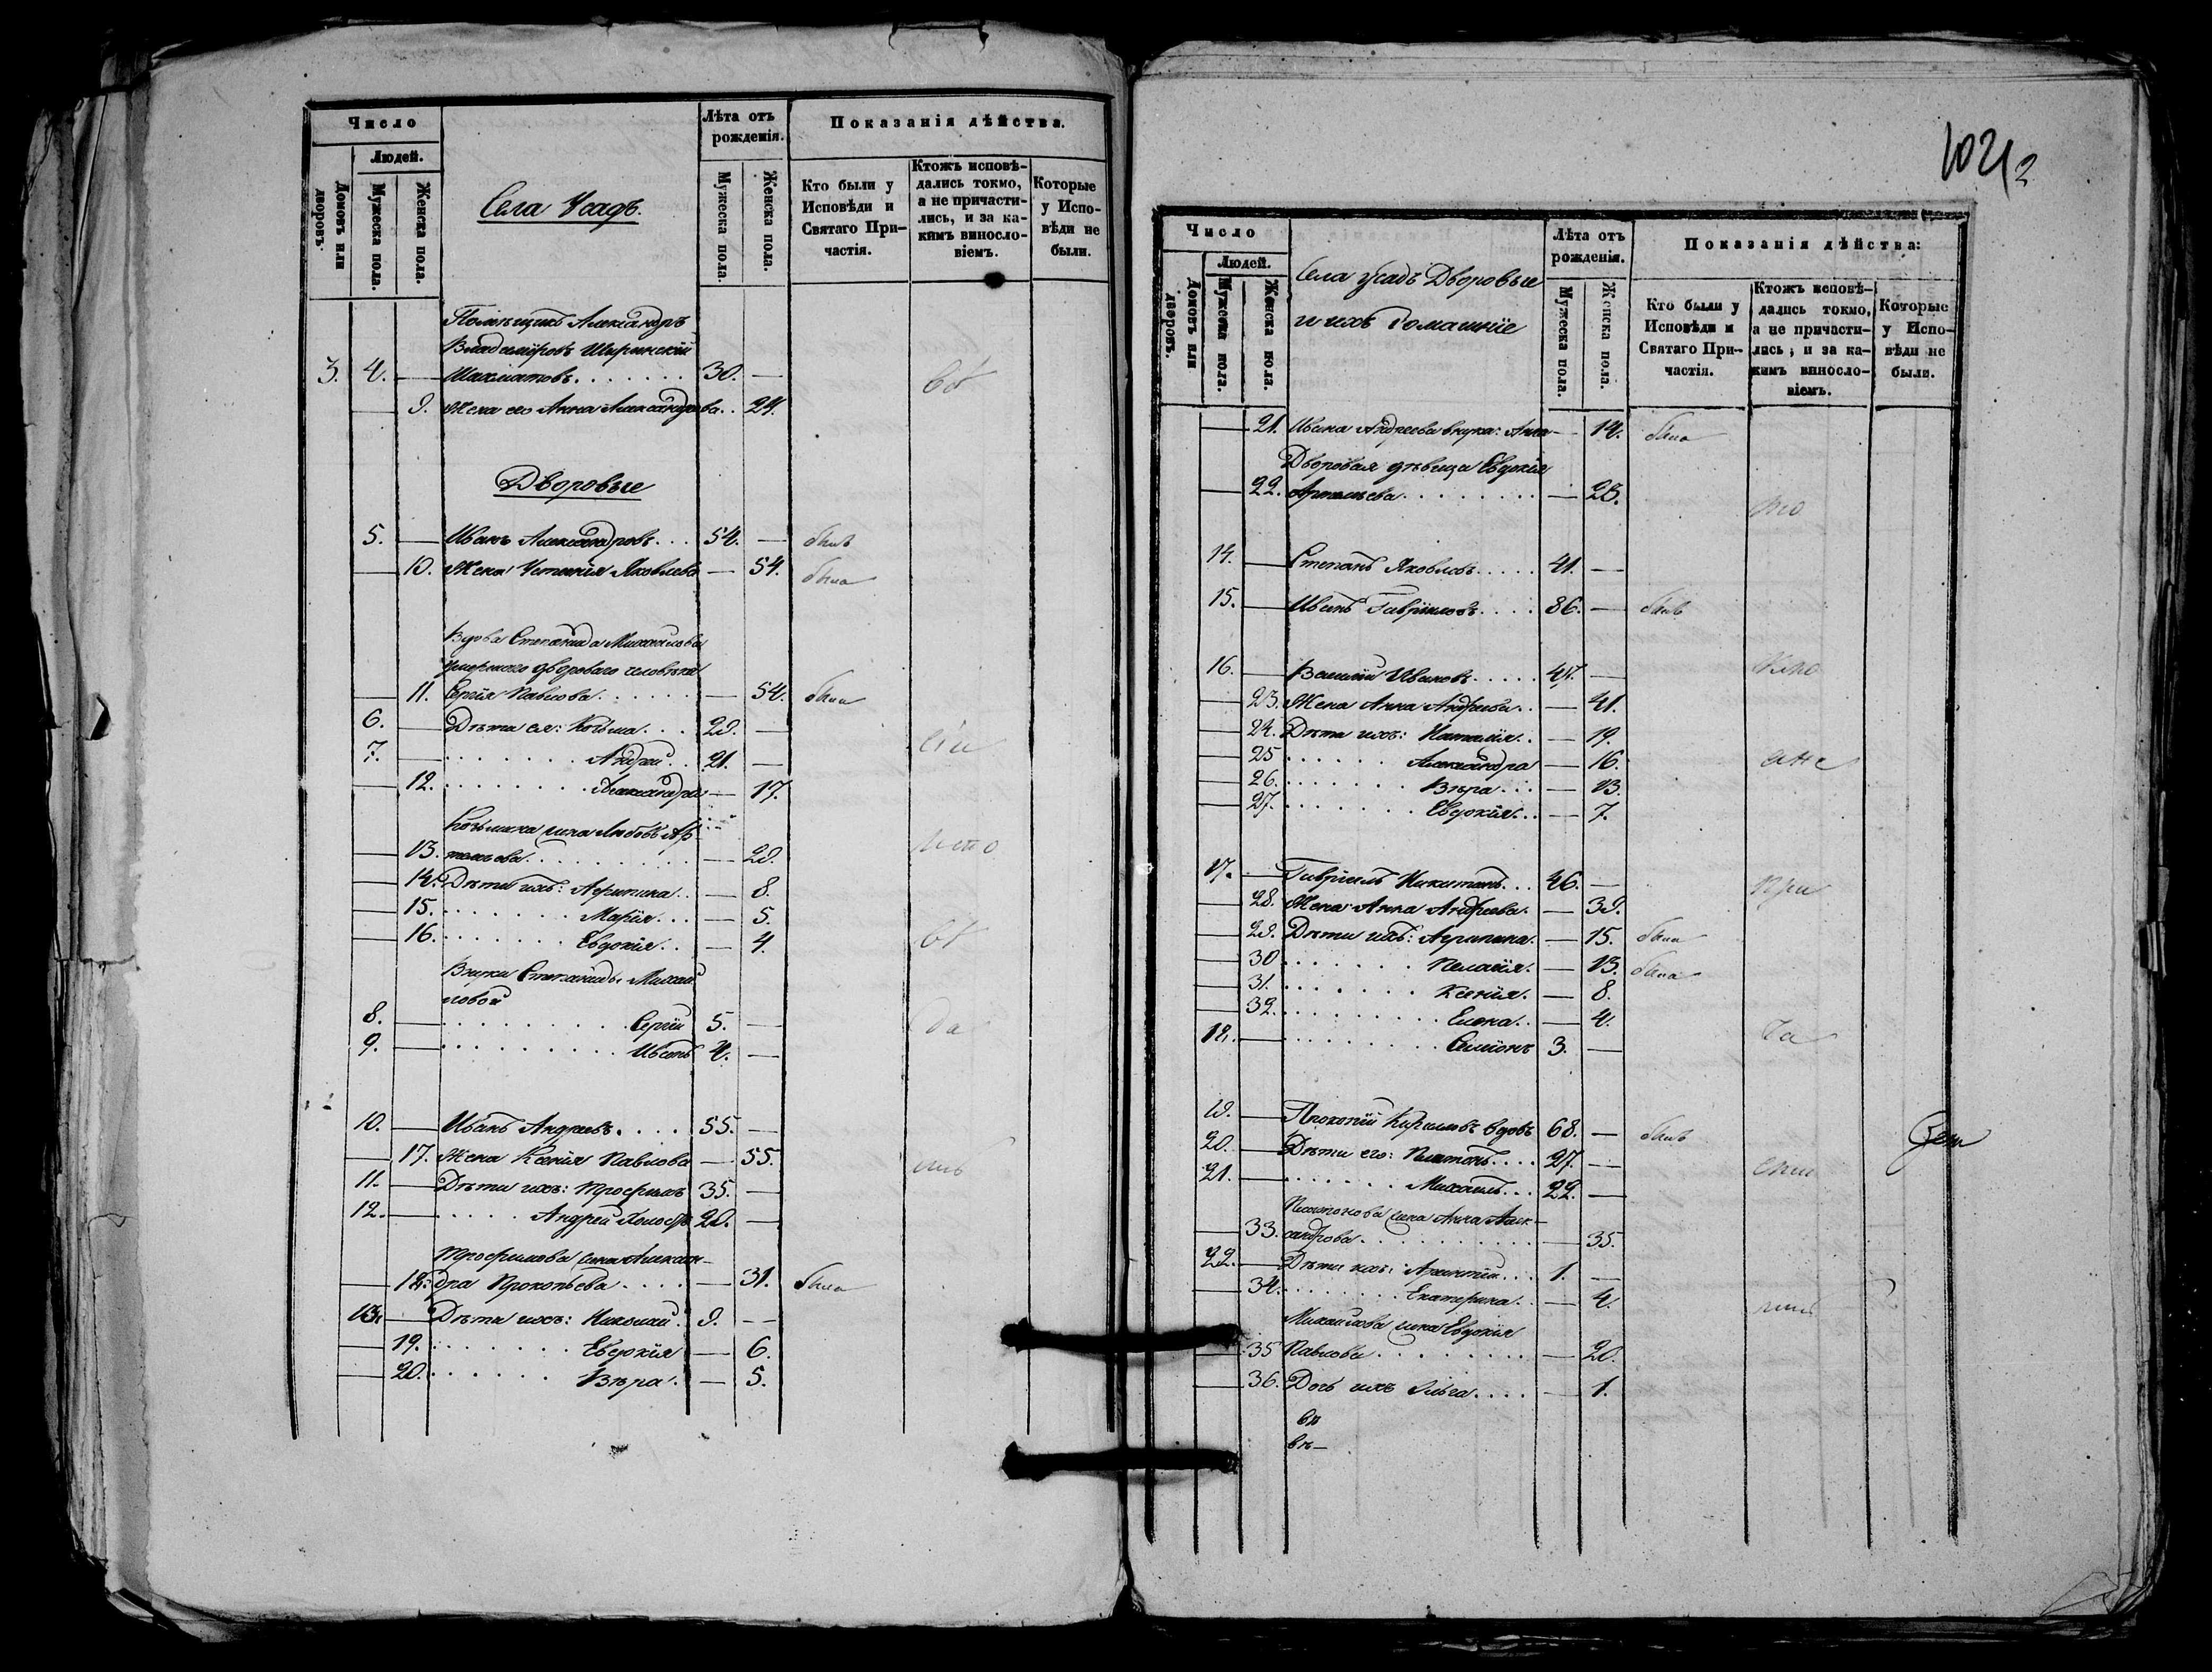 Число
Людей.
Домовъ или дворовъ.
Мужеска пола.
Женска пола.
Села Усадъ.
Лѣта отъ рожденія.
Мужеска пола.
Женска пола.
Показанія дѣйства.
Кто были у Исповѣди и Святаго Причастія.
Ктожъ исповѣдались токмо, а не причастились, и за какимъ винословіемъ.
Которые у Исповѣди не были.
Помѣщикъ Александръ
Владиміровъ Ширинскій
3. 4. — Шахматовъ . . . . . . 30. —
— 9. Жена его Анна Александрова . . 24.
Дворовые
5. — Иванъ Александровъ . . . 54. — былъ
— 10. Жена Устинія Яковлева — 54. была
Вдова Степанида Михайлова
умершаго двороваго человѣка
— 11. Сергія Павлова . . . . . . — 54. была
6. — Дѣти ея: Козьма . . . 29. —
7. — . . . . . . . Андрей . . 21. —
— 12. . . . . . . . Александра — 17.
Козьмина жена Любовь Ар-
— 13. темьева . . . . . . . . . — 29.
— 14. Дѣти ихъ: Агрипина . . — 8.
— 15. . . . . . . . Марія . . . — 5.
— 16. . . . . . . . Евдокія . . — 4.
Внуки Степаниды Михай
ловой
8. — . . . . . . . . . Сергій 5. —
9. — . . . . . . . . . Иванъ 4. —
10. — Иванъ Андреевъ . . . . 55. —
— 17. Жена Ксенія Павлова — 55.
11. — Дѣти ихъ: Трофимъ 35. —
12. — . . . . Андрей холостъ 29. —
Трофимова жена Алексан-
— 18. дра Прокопьева . . . . — 31. была
13. — Дѣти ихъ: Николай . 9. —
— 19. . . . . . . . Евдокія — 6.
— 20. . . . . . . Вѣра . — 5.
102
Число
Людей.
Домовъ или дворовъ.
Мужеска пола.
Женска пола.
Села Усадъ Дворовые
и ихъ домашніе
Лѣта отъ рожденія.
Мужеска пола.
Женска пола.
Показанія дѣйства:
Кто были у Исповѣди и Святаго Причастія.
Ктожъ исповѣдались токмо, а не причастились; и за какимъ винословіемъ.
Которые у Исповѣди не были.
— 21. Ивана Андреева внука: Анна — 14. была
Дворовая дѣвица Евдокія
— 22. Артемьева . . . . . . . . — 23.
14. — Степанъ Яковлевъ . . . . . 41. —
15. — Иванъ Гавріиловъ . . . . 86. — былъ
16. — Василій Ивановъ . . . . . 47. —
— 23. Жена Анна Андреева . . — 41.
— 24. Дѣти ихъ: Наталія . . — 19.
— 25 . . . . . . Александра — 16.
— 26. . . . . . . Вѣра . . . — 13.
— 27. . . . . . . Евдокія . . . — 7.
17. — Гавріилъ Никитинъ . . . 46. —
— 28. Жена Анна Андреева . — 39.
— 29. Дѣти ихъ: Агрипина . — 15. была
— 30 . . . . . . . Пелагія . — 13. была
— 31. . . . . . . . Ксенія . — 8.
— 32. . . . . . . . . Елена . . — 4.
18. — . . . . . . . . . Симеонъ 3. —
19. — Прокопій Кириловъ вдовъ 68. — былъ
20. — Дѣти его: Платонъ . . . . 27. —
21. — . . . . . . Михаилъ . . . 22. —
Платонова жена Анна Алек-
— 33. сандрова . . . . . . . . . — 35.
22. — Дѣти ихъ: . . . 1. —
— 34. . . . . . . . Екатерина . . — 4.
Михаилова жена Евдокія
— 35 Павлова . . . . . . . . — 20.
— 36. Дочь ихъ Ольга . . . . — 1.